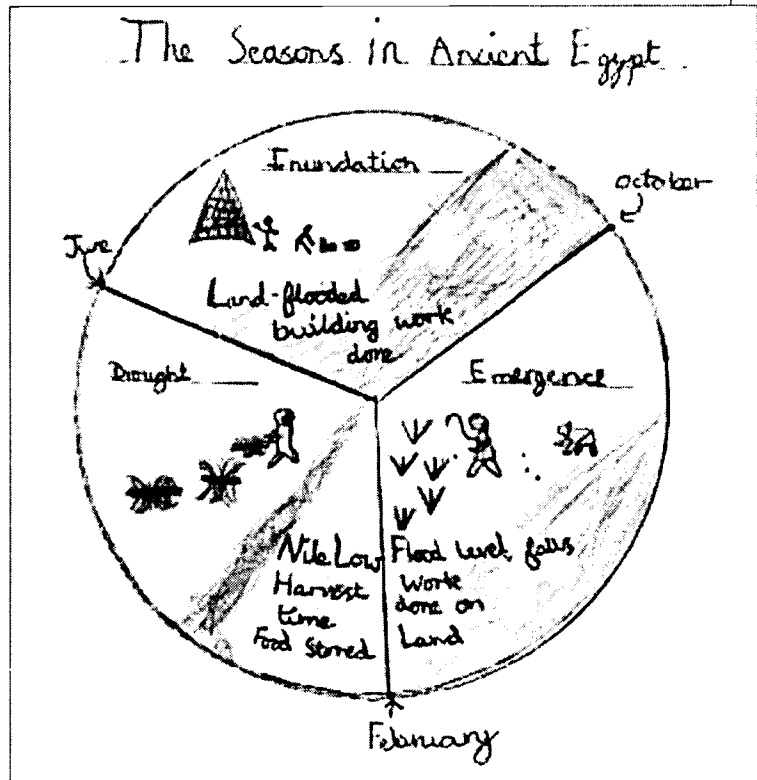 The Seasons in Ancient Egypt
Inundation
October
June
Land-flooded
building work
done
Drought
Emergence
Nile Low
Harvest
time
Food Stored
Flood level falls
Work
done on
Land
February